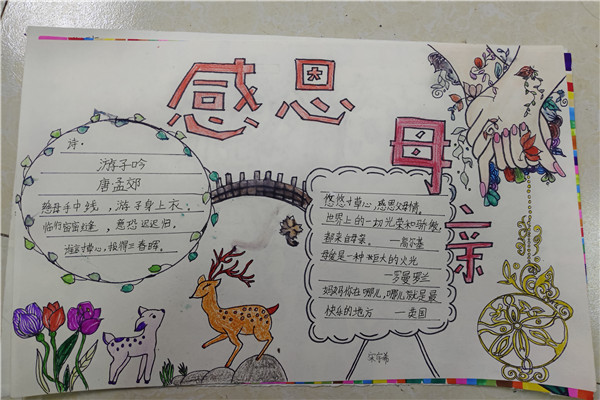 感恩
母亲
诗：
游子吟
唐孟郊
慈母手中线，游子身上衣。
临行密密缝，意恐迟迟归。
谁言寸草心，报得三春晖。
悠悠寸草心，感恩父母情，
世界上的一切光荣和骄傲，
都来自母亲。 —高尔基
母爱是一种巨大的火光
—罗曼罗兰
妈妈你在哪儿，哪儿就是最
快乐的地方 —英国